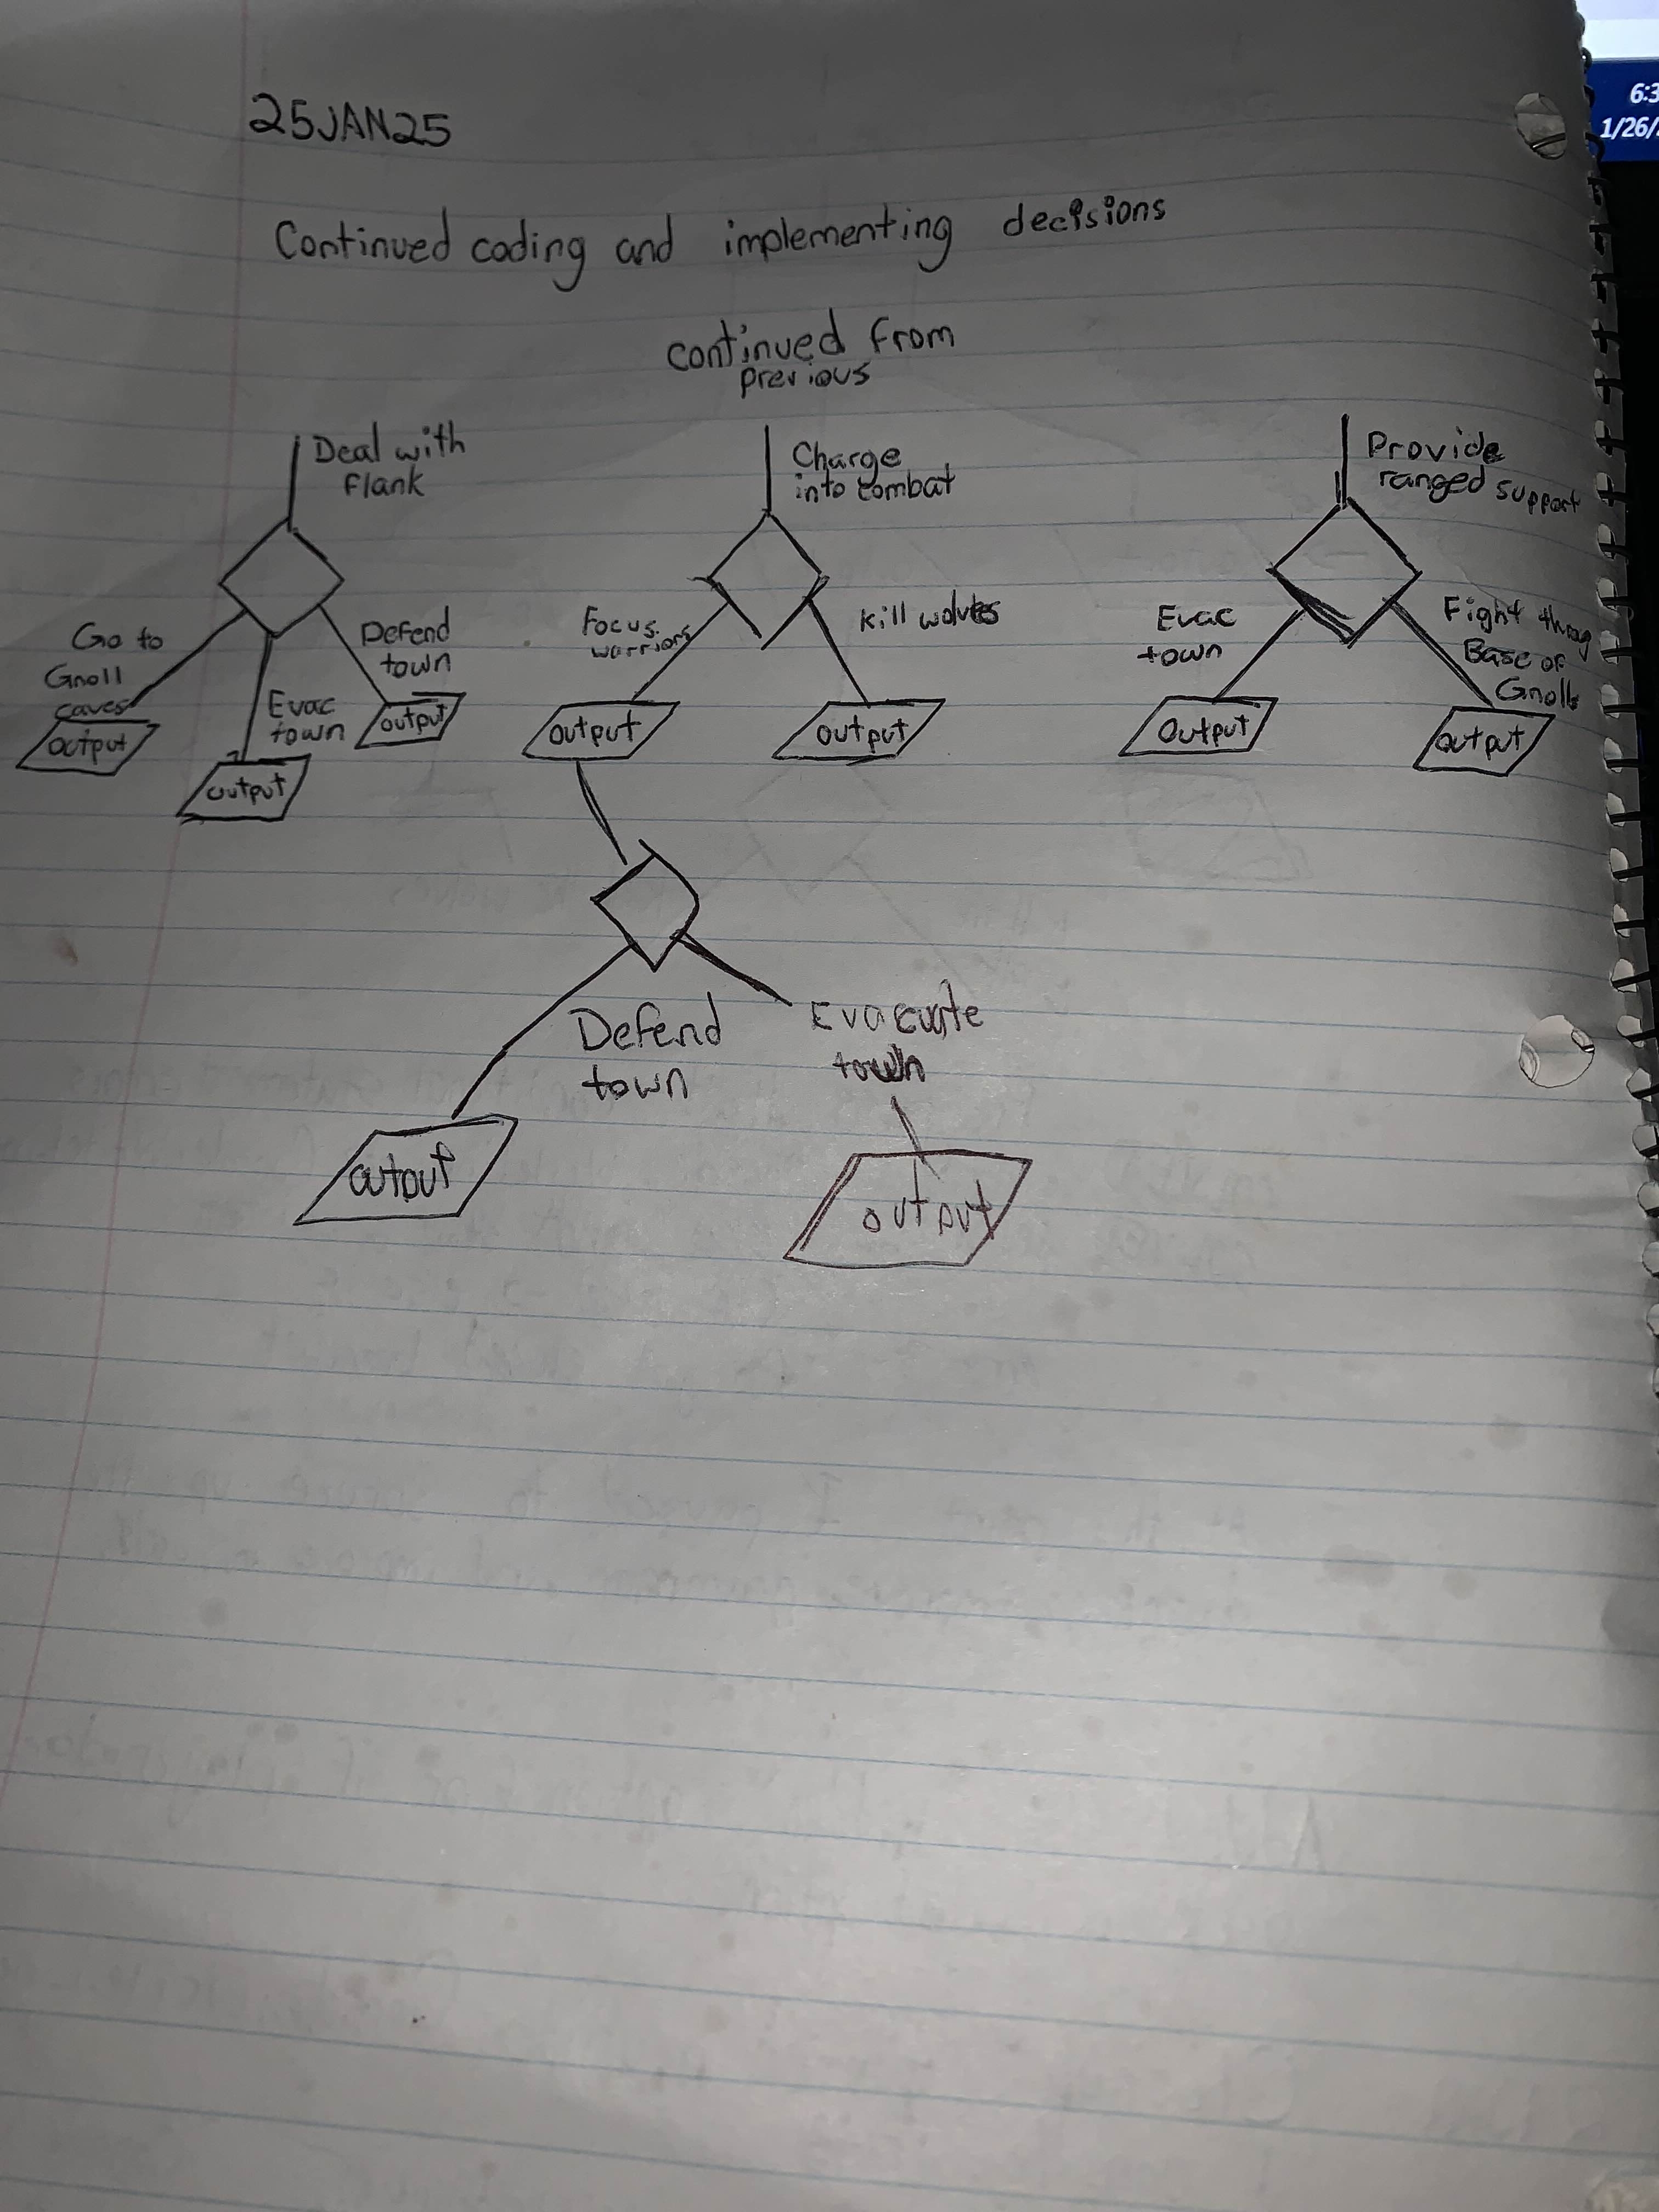 6:3
1/26/
25JAN25
Continued coding and implementing decisions
continued from
previous
Deal with
flank
Go to
Gnoll
caves
output
Evac
town
output
Defend
town
output
Charge
into combat
Focus
warriors
output
Kill wolves
output
Defend
town
output
Evacuate
town
output
Provide
ranged support
Evac
town
Output
Fight throug
Base of
Gnolls
output